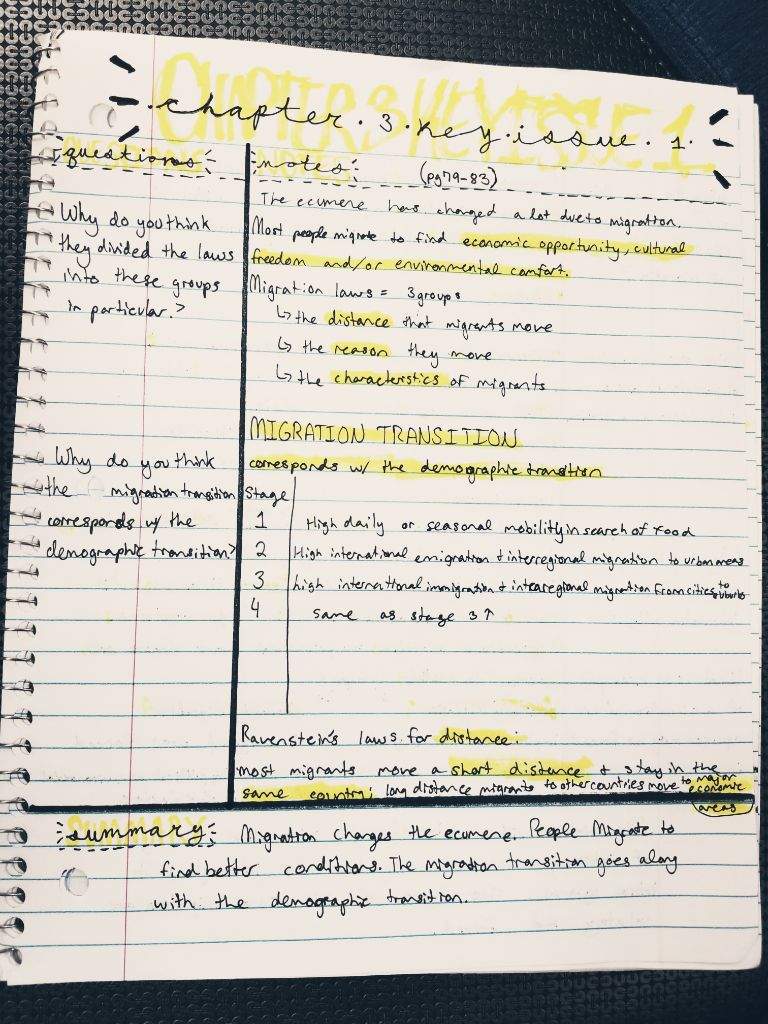 CHAPTER 3 KEY ISSUE 1
chapter. 3. key. issue. 1.
questions
Why do you think
they divided the laws
into these groups
in particular?
Why do you think
the migration transition
corresponds w/ the
demographic transition?
notes (pg 79-83)
The ecumene has changed a lot due to migration.
Most people migrate to find economic opportunity, cultural
freedom and/or environmental comfort.
Migration laws = 3 groups
↳ the distance that migrants move
↳ the reason they move
↳ the characteristics of migrants
MIGRATION TRANSITION
corresponds w/ the demographic transition
Stage
1 High daily or seasonal mobility in search of food
2 High international emigration + interregional migration to urban areas
3 high international immigration + intraregional migration from cities to suburbs
4 same as stage 3 ↑
Ravenstein's laws for distance:
most migrants move a short distance + stay in the
same country; long distance migrants to other countries move to major economic
areas
summary Migration changes the ecumene. People Migrate to
find better conditions. The migration transition goes along
with the demographic transition.